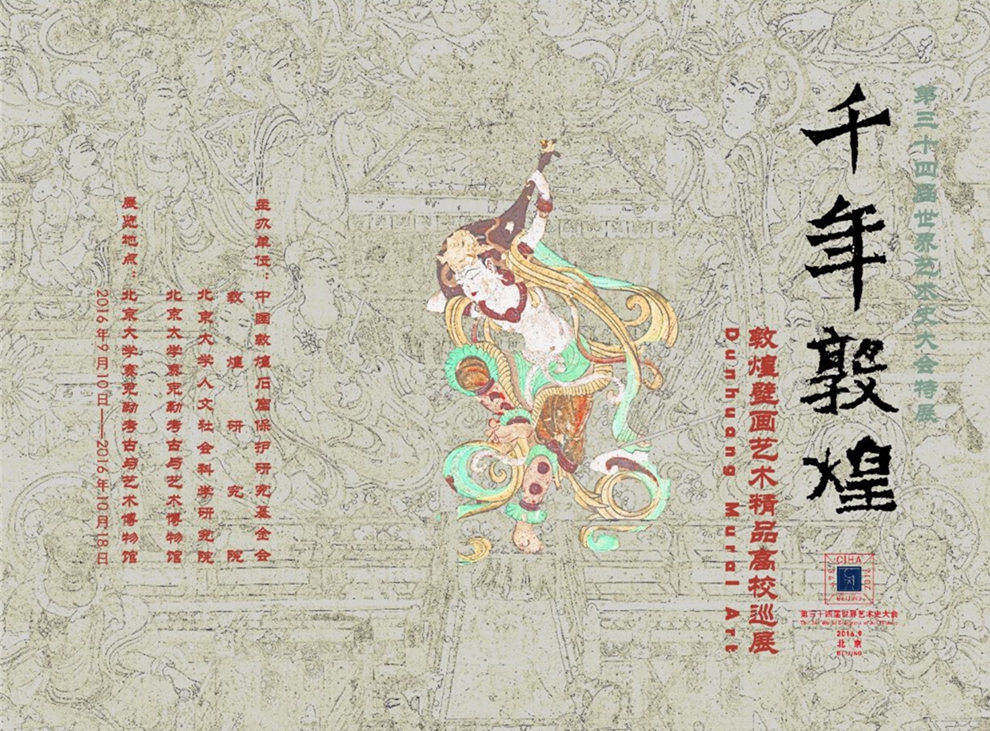 第三十四届世界艺术史大会特展
千年敦煌
敦煌壁画艺术精品高校巡展
Dunhuang Mural Art
主办单位：中国敦煌石窟保护研究基金会
敦煌研究院
北京大学人文社会科学研究院
北京大学赛克勒考古与艺术博物馆
展览地点：北京大学赛克勒考古与艺术博物馆
2016年9月10日——2016年10月18日
CIHA
第三十四届世界艺术史大会
2016.9
北京
BEIJING